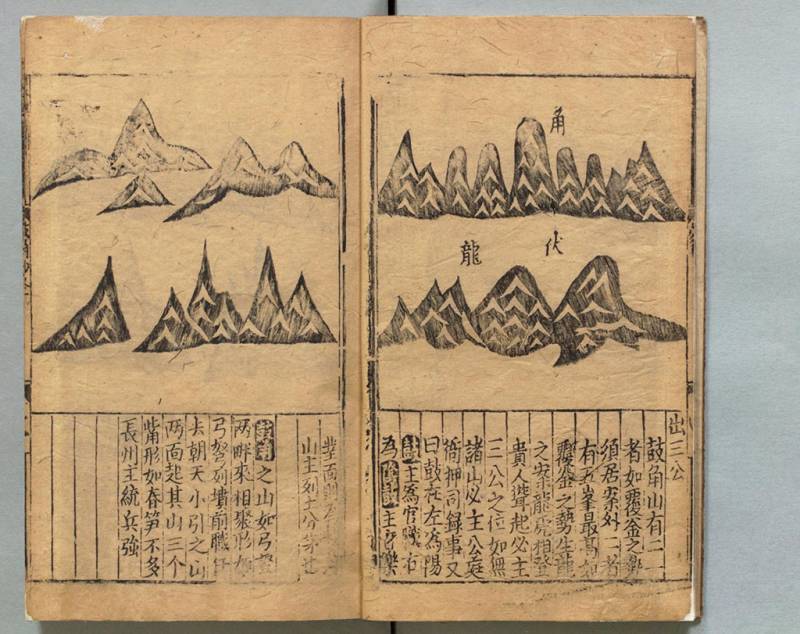 角
伏
龍
出三公
鼓角山有二一
者如覆釜之勢
須居案外二者
有五峯最高如
覆釜之勢生龍
之案龍虎相登
貴人聳起必主
三公之位如無
諸山必主公庭
衙押司録事又
曰鼓在左為陽
主為官職右
為主音樂
山主列土分茅
之山如弓
兩畔來相聚形如
弓弩列墳前職
去朝天小引之山
兩面起其山三个
觜形如春笋不多
長州主統兵強